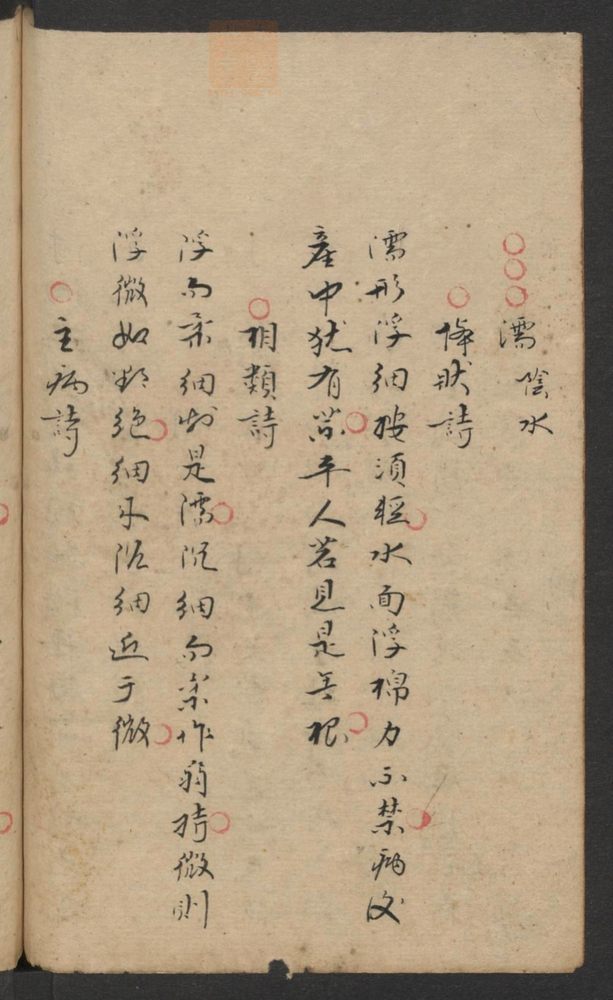 濡陰水
体狀詩
濡形浮細按須輕水面浮棉力不禁病後
產中犹有药平人若見是无根
相類詩
浮而柔細知是濡沉細而柔作弱持微則
浮微如欲絕細來沉細近于微
主病詩